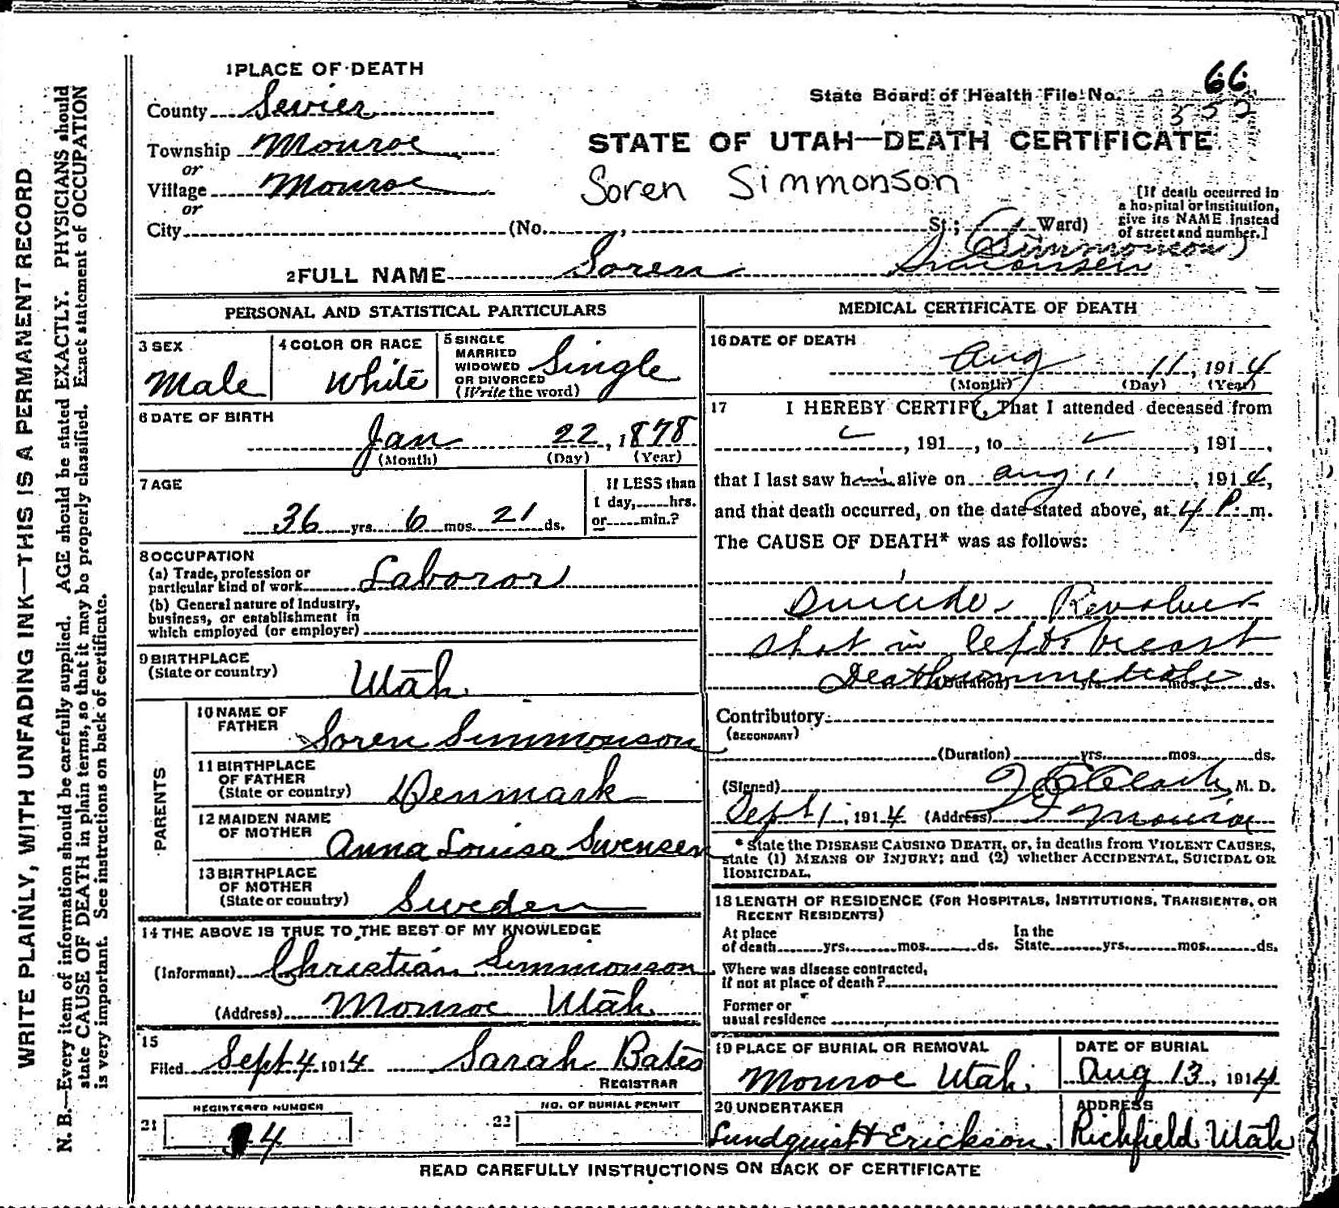 WRITE PLAINLY, WITH UNFADING INK—THIS IS A PERMANENT RECORD
N. B.—Every item of information should be carefully supplied. AGE should be stated EXACTLY. PHYSICIANS should
state CAUSE OF DEATH in plain terms, so that it may be properly classified. Exact statement of OCCUPATION
is very important. See instructions on back of certificate.
1 PLACE OF DEATH
County Sevier
Township Monroe
or
Village Monroe
or
City (No. , St.; Ward)
State Board of Health File No. 66
352
STATE OF UTAH—DEATH CERTIFICATE
Soren Simmonson
[If death occurred in
a hospital or institution,
give its NAME instead
of street and number.]
(Simmonson)
2 FULL NAME Soren Simonsen
PERSONAL AND STATISTICAL PARTICULARS
3 SEX
Male
4 COLOR OR RACE
White
5 SINGLE
MARRIED
WIDOWED
OR DIVORCED
(Write the word)
Single
6 DATE OF BIRTH
Jan 22, 1878
(Month) (Day) (Year)
7 AGE
36 yrs. 6 mos. 21 ds.
If LESS than
1 day, hrs.
or min.?
8 OCCUPATION
(a) Trade, profession or
particular kind of work Laboror
(b) General nature of Industry,
business, or establishment in
which employed (or employer)
9 BIRTHPLACE
(State or country)
Utah
PARENTS
10 NAME OF
FATHER
Soren Simmonson
11 BIRTHPLACE
OF FATHER
(State or country)
Denmark
12 MAIDEN NAME
OF MOTHER
Anna Louisa Swensen
13 BIRTHPLACE
OF MOTHER
(State or country)
Sweden
14 THE ABOVE IS TRUE TO THE BEST OF MY KNOWLEDGE
(Informant) Christian Simmonson
(Address) Monroe Utah
15
Filed Sept 4 1914 Sarah Bates
REGISTRAR
21 REGISTERED NUMBER
4
22 NO. OF BURIAL PERMIT
MEDICAL CERTIFICATE OF DEATH
16 DATE OF DEATH
Aug 11, 1914
(Month) (Day) (Year)
17 I HEREBY CERTIFY, That I attended deceased from
, 191 , to , 191 ,
that I last saw him alive on aug 11, 1914,
and that death occurred, on the date stated above, at 4 P. m.
The CAUSE OF DEATH* was as follows:
Suicide. Revolver
shot in left breast
Death immediate
(Duration) yrs. mos. ds.
Contributory
(SECONDARY)
(Duration) yrs. mos. ds.
(Signed) Clark, M. D.
Sept 1, 1914 (Address) Monroe
* State the DISEASE CAUSING DEATH, or, in deaths from VIOLENT CAUSES,
state (1) MEANS OF INJURY; and (2) whether ACCIDENTAL, SUICIDAL OR
HOMICIDAL.
18 LENGTH OF RESIDENCE (FOR HOSPITALS, INSTITUTIONS, TRANSIENTS, OR
RECENT RESIDENTS)
At place
of death yrs. mos. ds.
In the
State yrs. mos. ds.
Where was disease contracted,
if not at place of death?
Former or
usual residence
19 PLACE OF BURIAL OR REMOVAL
Monroe Utah.
DATE OF BURIAL
Aug 13, 1914
20 UNDERTAKER
Lundquist & Erickson.
ADDRESS
Richfield Utah
READ CAREFULLY INSTRUCTIONS ON BACK OF CERTIFICATE